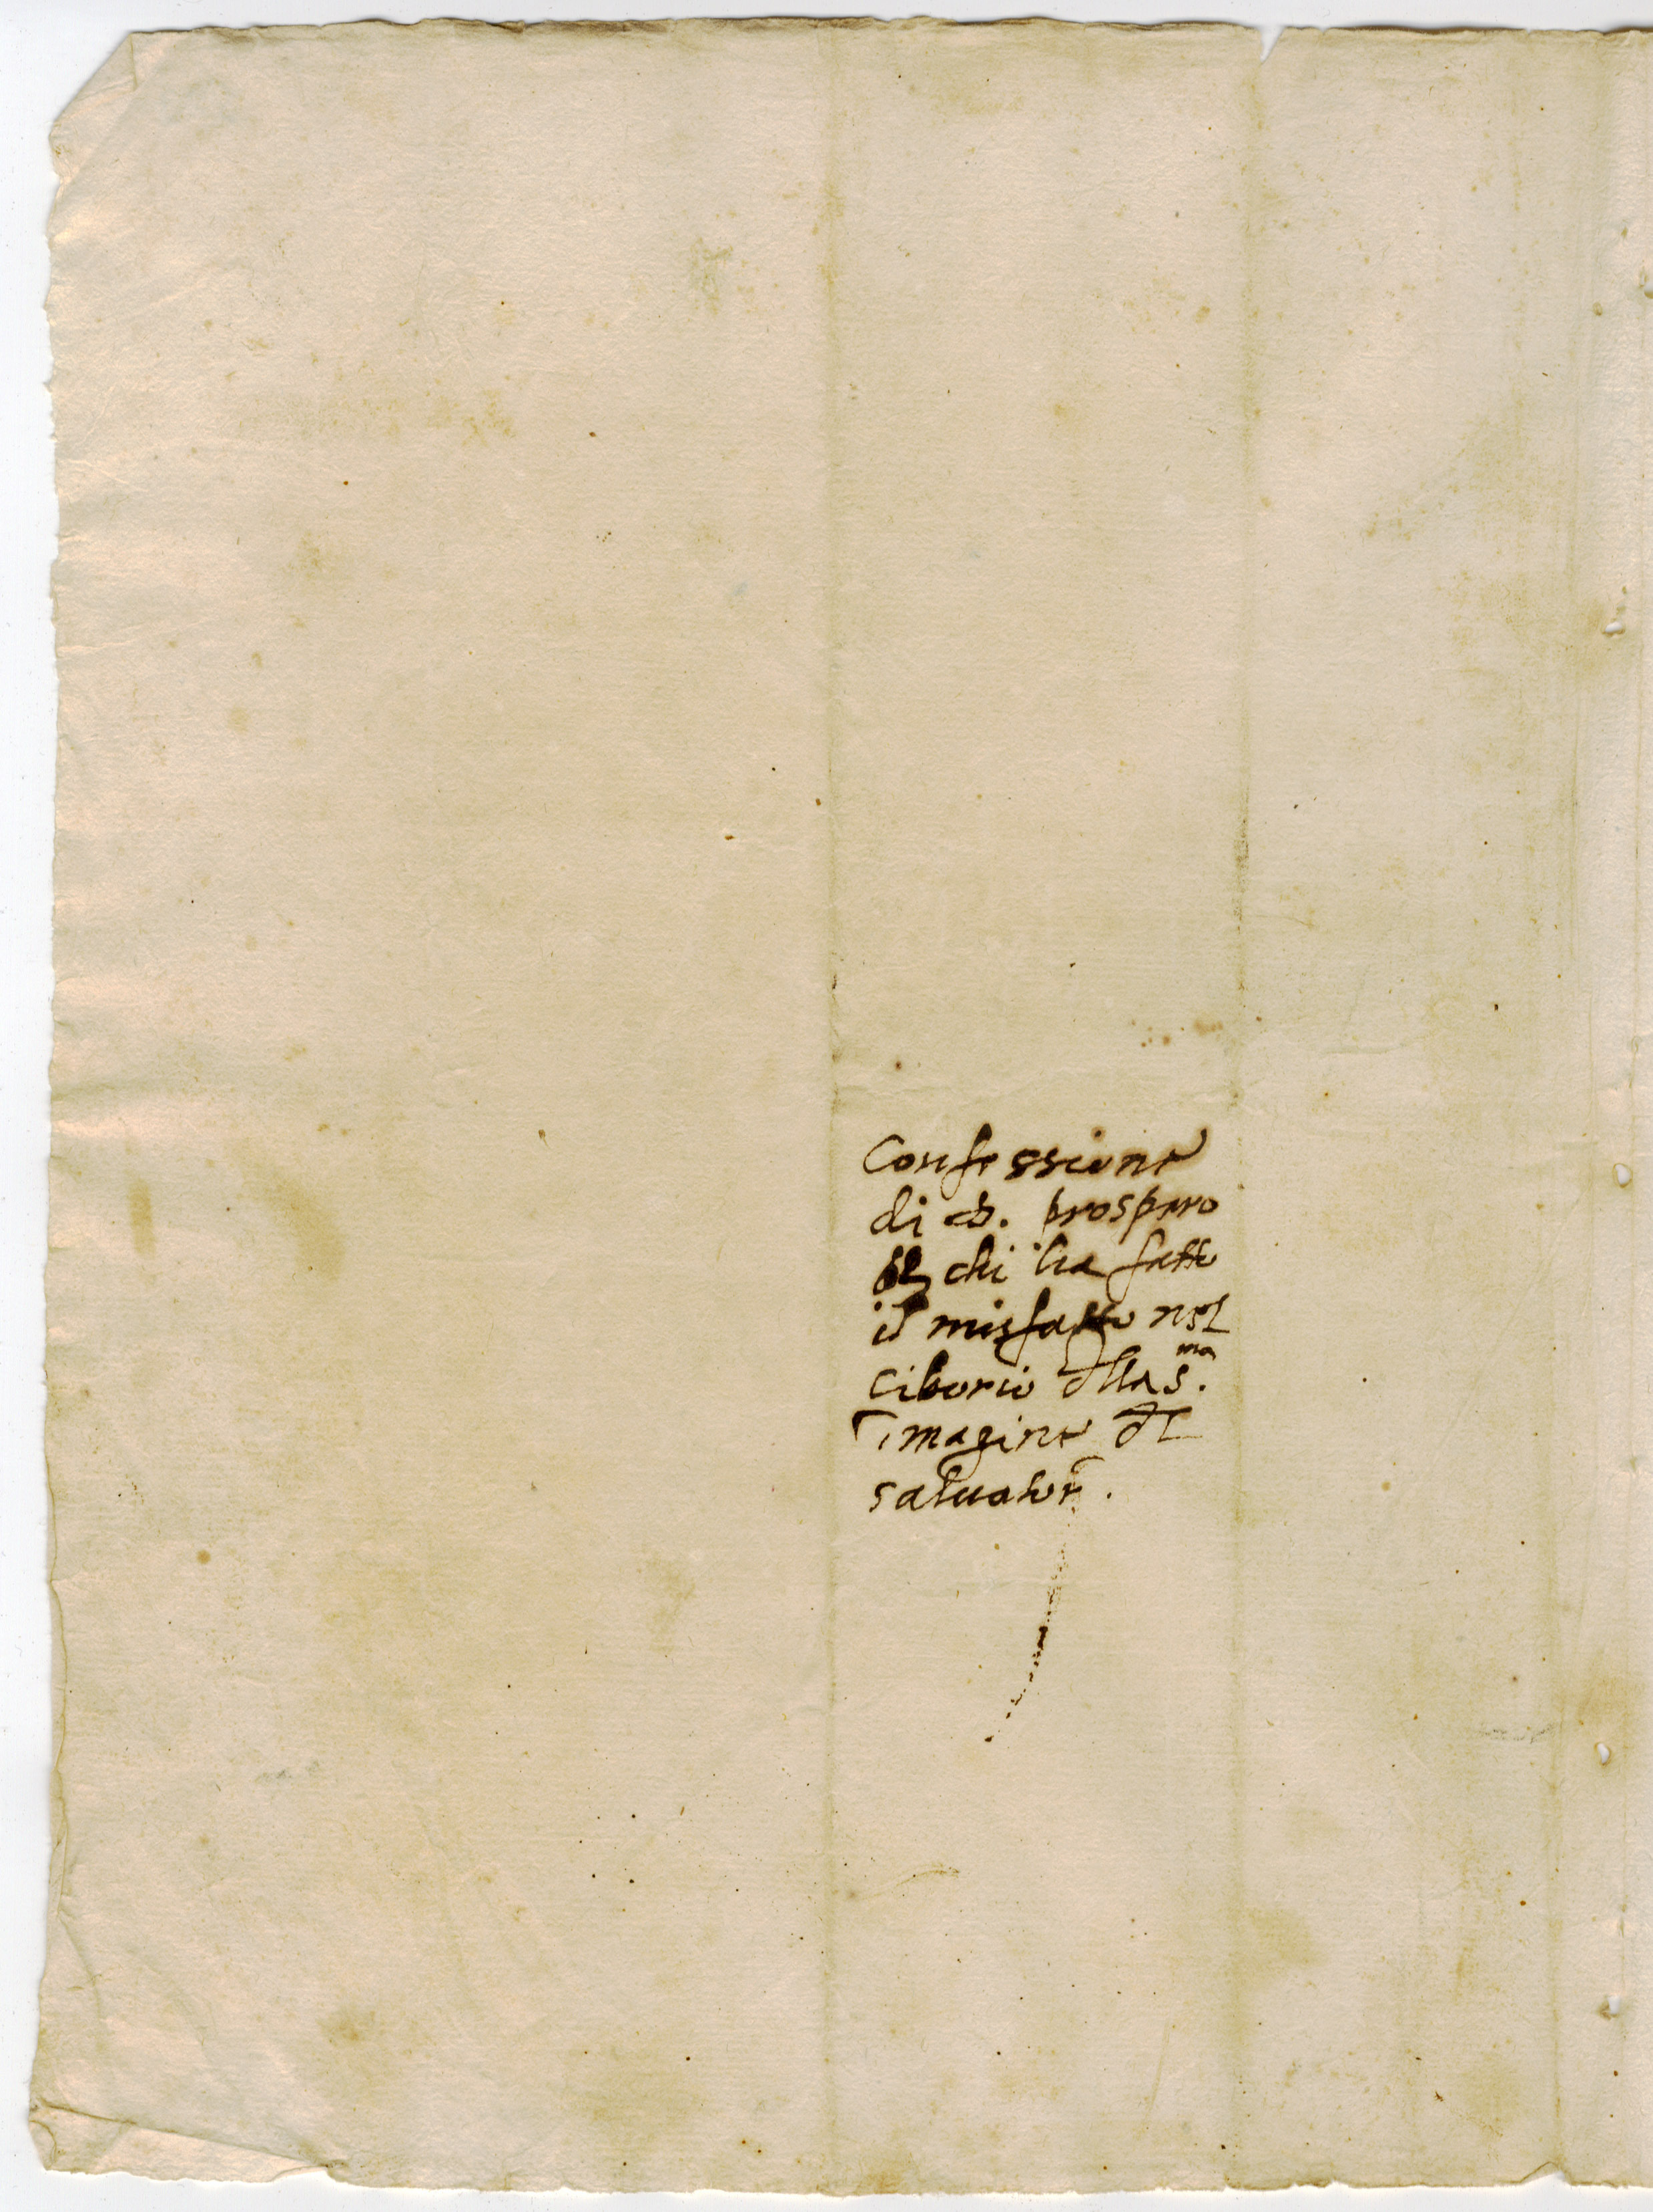 Confessione
di D. prospero
chi ha fatto
il misfatto nel
ciborio dlla s.ma
imagine dl
saluatore.